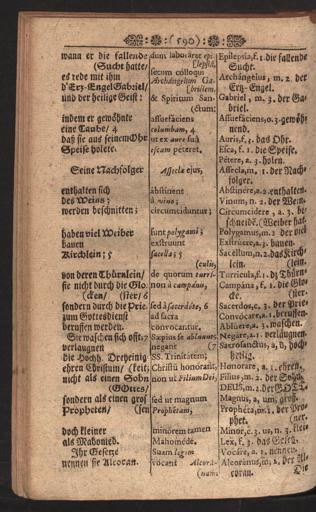 (590)
wann er die fallende
(Sucht hatte/
es rede mit ihm
d'Ertz-Engel Gabriel/
und der heilige Geist:
indem er gewöhnte
eine Taube/ 4
daß sie aus seinem Ohr
Speise holete.
Seine Nachfolger
enthalten sich
des Weins;
werden beschnitten;
haben viel Weiber
bauen
Kirchlein; 5
von deren Thürnlein/
sie nicht durch die Glo-
(cken/
sondern durch die Prie-
zum Gottesdienst
beruffen werden.
Sie waschen sich offt,
verlaugnen
die Hochh. Dreyheinig
ehren Christum/ (keit;
nicht als einen Sohn
(GOttes/
sondern als einen gros
Propheten/ (sen
doch kleiner
als Mahomed.
Ihr Gesetze
nennen sie Alcoran.
dum laboraret epi-
(lepsiâ,
secum colloqui
Archangelum Ga-
(brielem,
& Spiritum San-
(ctum:
assuefaciens
columbam, 4
ut ex aure suâ
escam peteret.
Asseclæ ejus,
abstinent
à vino;
circumciduntur;
sunt polygami;
exstruunt
sacella; 5
de quorum turri-
(culis,
non à campanis,
sed à sacerdote, 6
ad sacra
convocantur.
Sæpius se abluunt,
negant (7
SS. Trinitatem;
Christũ honorant,
non ut Filium Dei,
sed ut magnum
Prophetam,
minorem tamen
Mahomede.
Suam legem
vocant Alcora-
(num.
Epilepsia, f. 1. die fallende
Sucht.
Archangelus, m. 2. der
Ertz-Engel.
Gabriel, m. 3. der Ga-
briel.
Assuefaciens, o. 3. gewöh-
nend.
Auris, f. 3. das Ohr.
Esca, f. 1. die Speise.
Petere, a. 3. holen.
Assecla, m. 1. der Nach-
folger.
Abstinere, a. 2. enthalten.
Vinum, n. 2. der Wein.
Circumcidere, a. 3. be-
schneidē.
Polygamus, m. 2. der viel
Exstruere, a. 3. bauen.
Sacellum, n. 2. das Kirch-
lein.
Turricula, f. 1. dz Thürn-
Campana, f. 1. die Glo-
cke.
Sacerdos, c. 3. der Prie-
Convocare, a. 1. beruffen.
Abluere, a. 3. waschen.
Negare, a. 1. verläugnen.
Sacrosanctus, a, um, hoch-
heilig.
Honorare, a. 1. ehren.
Filius, m. 2. der Sohn.
DEUS, m. 2. der GOTT.
Magnus, a, um, groß.
Propheta, m. 1. der Pro-
phet.
Minor, c. 3. us, n. 3. klei-
Lex, f. 3. das Gesetz.
Vocare, a. 1. nennen.
Alcoranus, m. 2. der Al-
coran.
Die